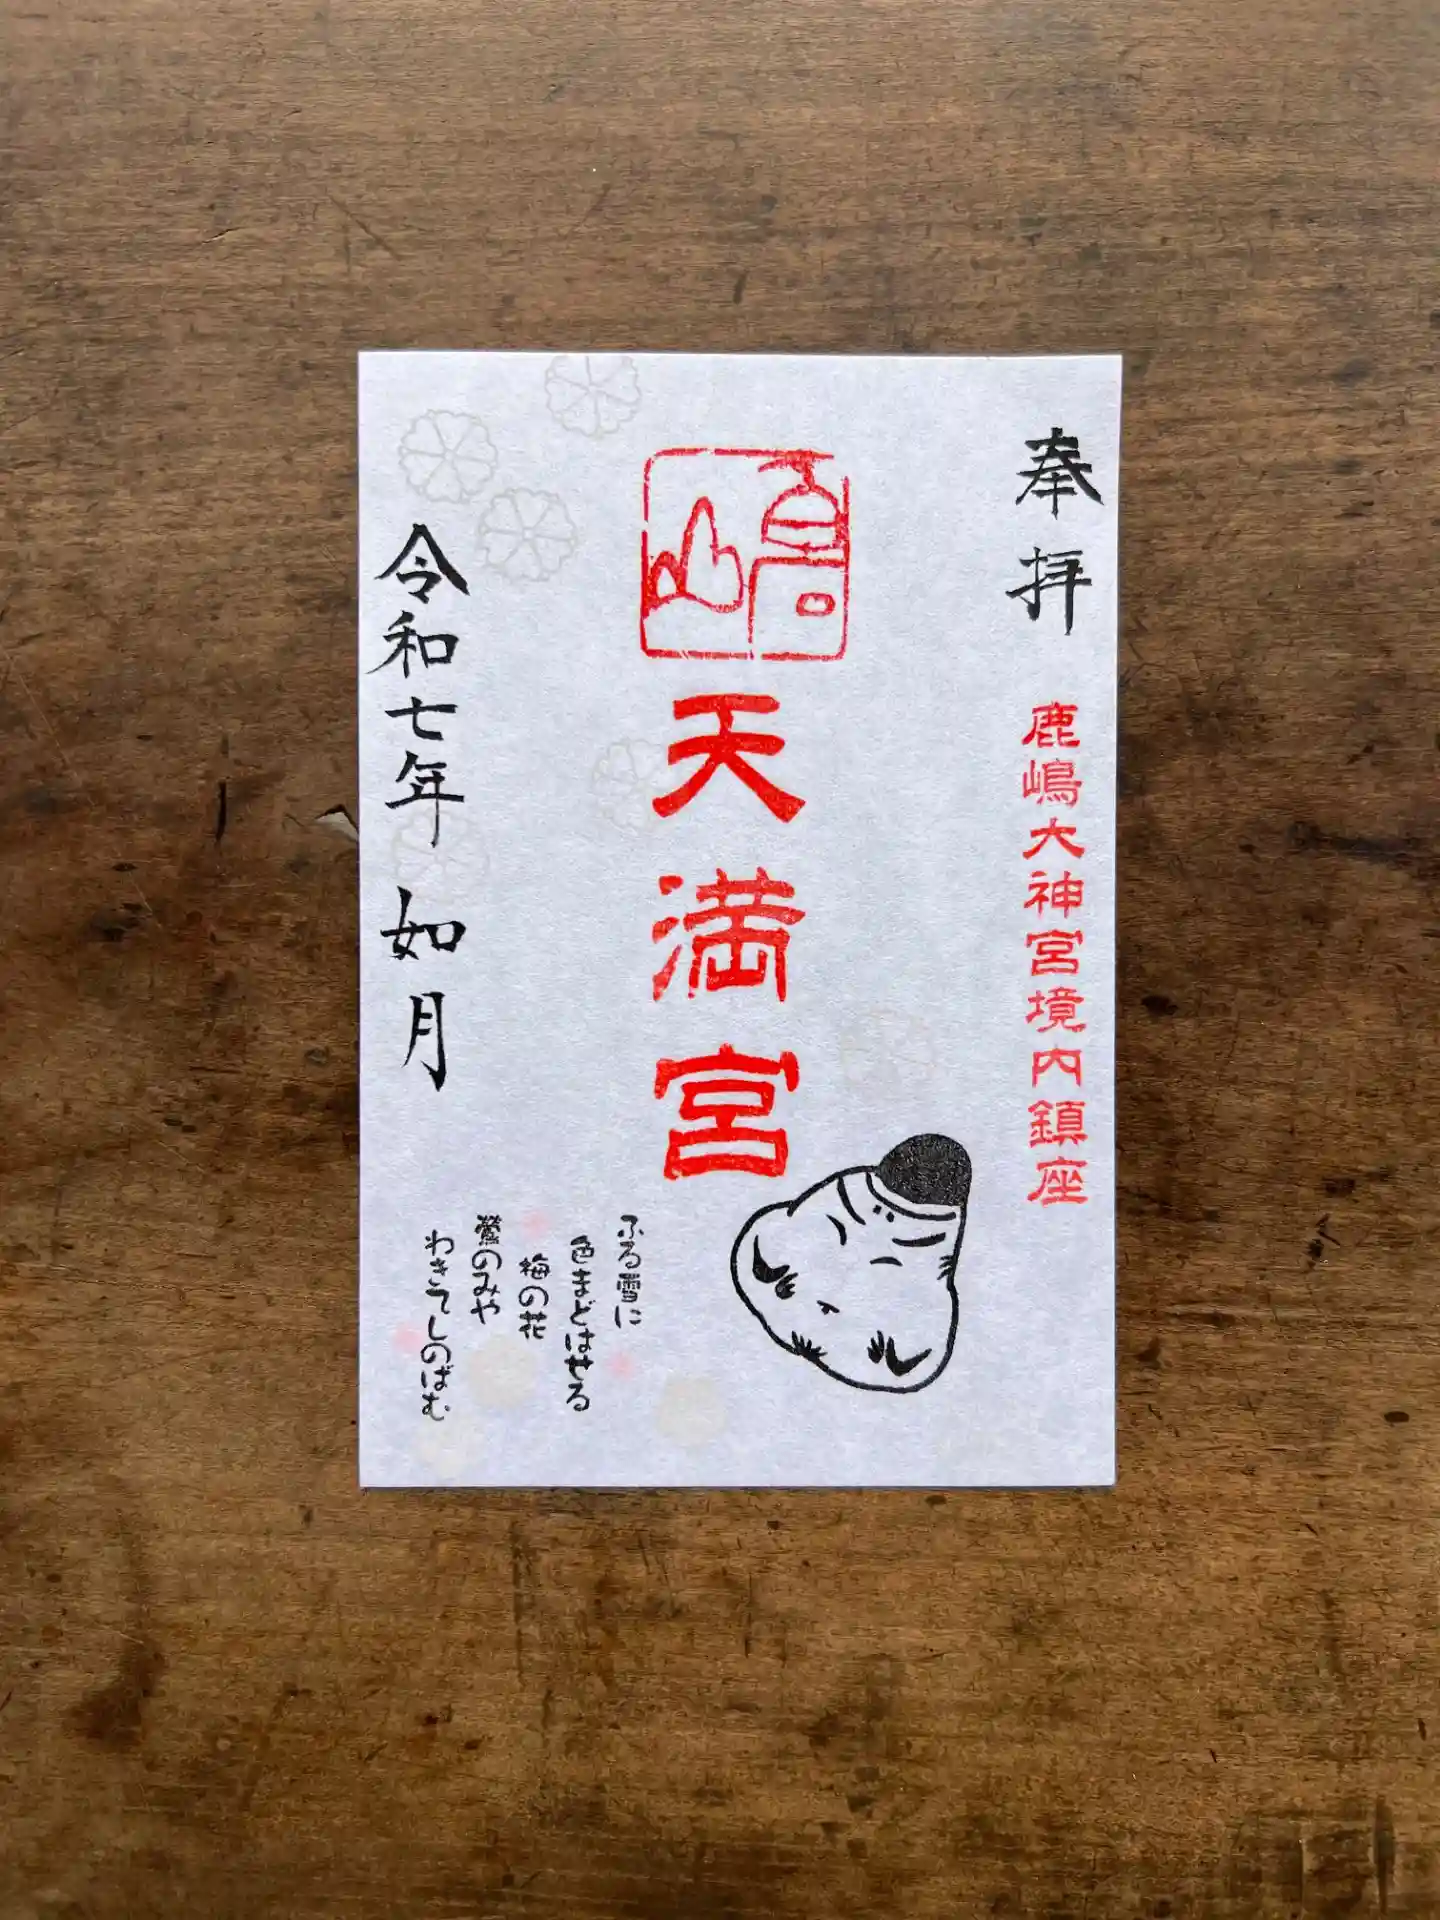 奉拝
鹿嶋大神宮境内鎮座
嶋
天満宮
ふる雪に
色まどはせる
梅の花
鶯のみや
わきてしのばむ
令和七年如月